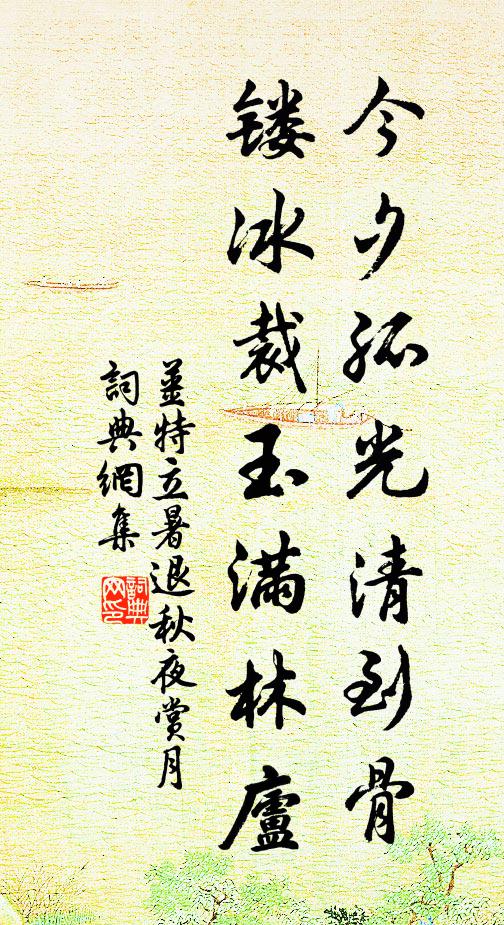 今夕孤光清到骨
镂冰裁玉满林廬
姜特立暑退秋夜赏月
詞典網集
詞典网印